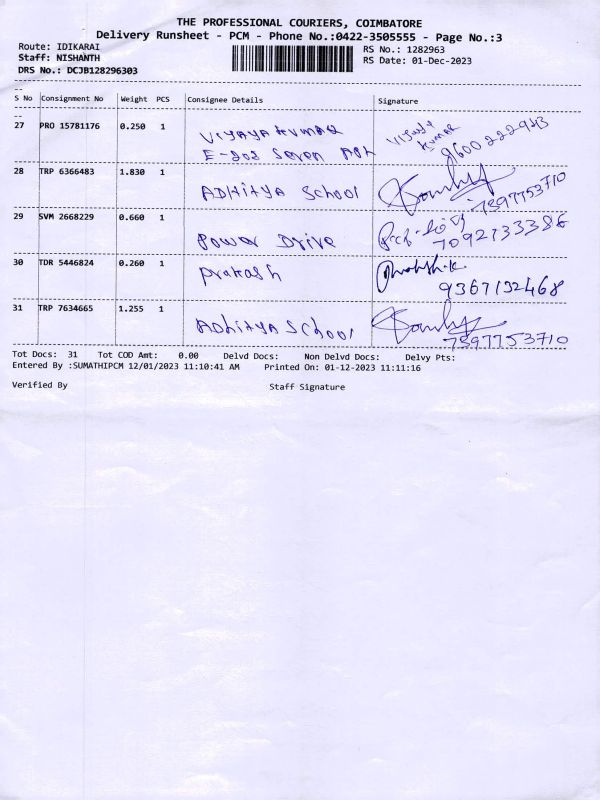 THE PROFESSIONAL COURIERS, COIMBATORE
Delivery Runsheet - PCM - Phone No.:0422-3505555 - Page No.:3
Route: IDIKARAI RS No.: 1282963
Staff: NISHANTH RS Date: 01-Dec-2023
DRS No.: DCJB128296303
S No Consignment No Weight PCS Consignee Details Signature
27 PRO 15781176 0.250 1 Vijaya kumar Vijaya kumar
E-202 Seven 9600222943
28 TRP 6366483 1.830 1 ADHitYA School 7397753710
29 SVM 2668229 0.660 1 Power Drive 7092733386
30 TDR 5446824 0.260 1 prakash 9367132468
31 TRP 7634665 1.255 1 ADhitya School 7397753710
Tot Docs: 31 Tot COD Amt: 0.00 Delvd Docs: Non Delvd Docs: Delvy Pts:
Entered By :SUMATHIPCM 12/01/2023 11:10:41 AM Printed On: 01-12-2023 11:11:16
Verified By Staff Signature